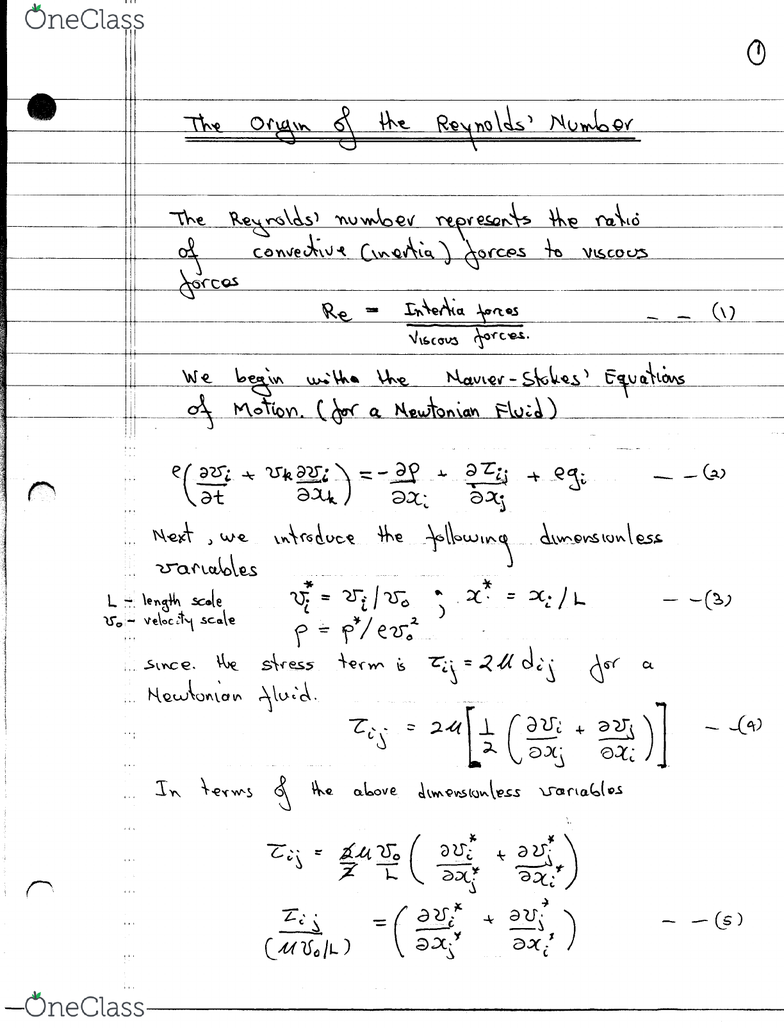 OneClass
1
The Origin of the Reynolds' Number
The Reynolds' number represents the ratio
of convective (inertia) forces to viscous
forces
Re = Intertia forces / Viscous forces. - - (1)
We begin withe the Navier-Stokes' Equations
of Motion. (for a Newtonian Fluid)
ρ(∂vi/∂t + vk ∂vi/∂xk) = -∂p/∂xi + ∂τij/∂xj + ρgi - - (2)
Next, we introduce the following dimensionless
variables
L - length scale vi* = vi/v0 ; x* = xi/L - - (3)
v0 - velocity scale p = p*/ρv0²
since. the stress term is τij = 2μ dij for a
Newtonian fluid.
τij = 2μ[1/2 (∂vi/∂xj + ∂vj/∂xi)] - - (4)
In terms of the above dimensionless variables
τij = 2/2 μ v0/L (∂vi*/∂xj* + ∂vj*/∂xi*)
τij/(μv0/L) = (∂vi*/∂xj* + ∂vj*/∂xi*) - - (5)
OneClass